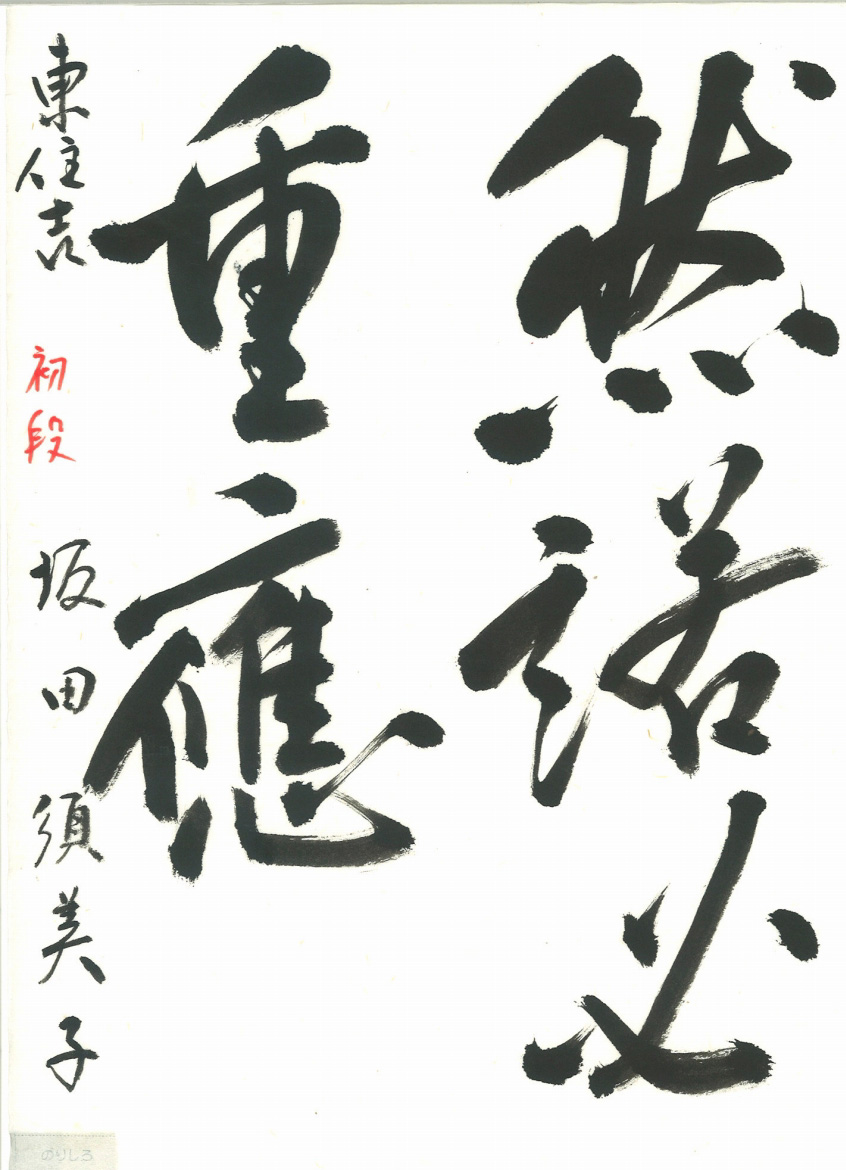 然諾必
重應
東住吉 初段 坂田須美子
のりしろ